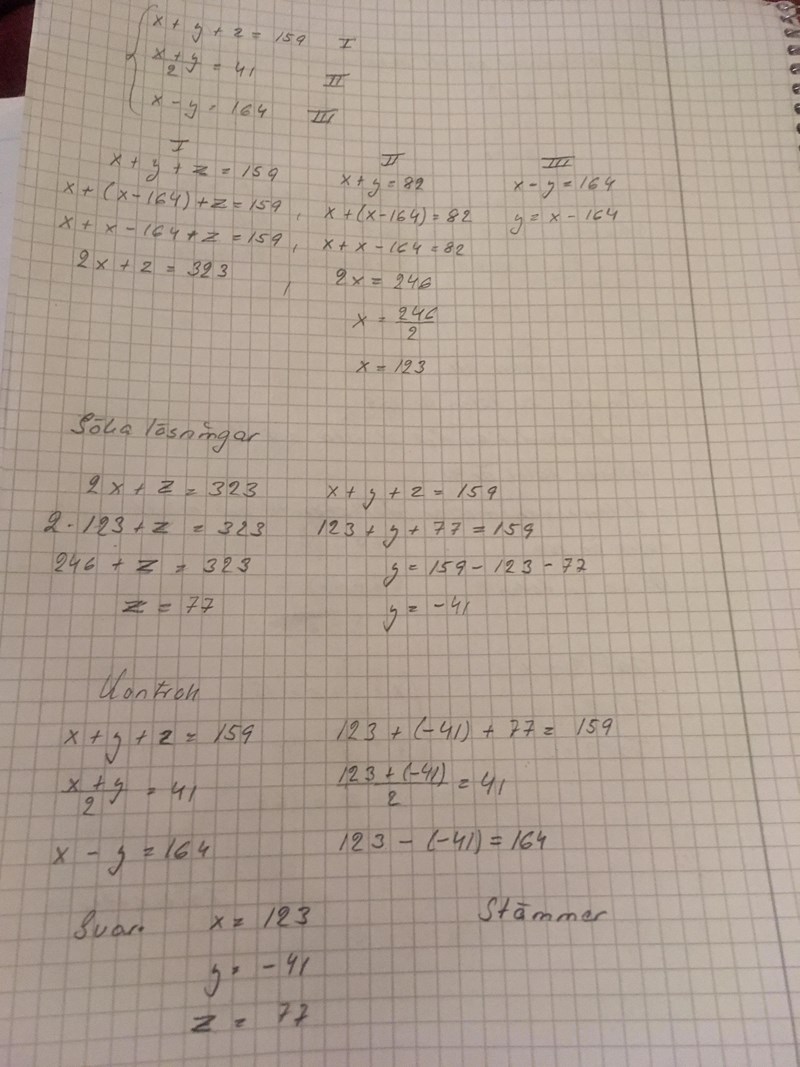 x + y + z = 159 I
x+y/2 = 41 II
x - y = 164 III
I II III
x + y + z = 159 x + y = 82 x - y = 164
x + (x-164) + z = 159, x + (x-164) = 82 y = x - 164
x + x - 164 + z = 159, x + x - 164 = 82
2x + z = 323, 2x = 246
x = 246/2
x = 123
Söka lösningar
2x + z = 323 x + y + z = 159
2·123 + z = 323 123 + y + 77 = 159
246 + z = 323 y = 159 - 123 - 77
z = 77 y = -41
Kontroll
x + y + z = 159 123 + (-41) + 77 = 159
x+y/2 = 41 123+(-41)/2 = 41
x - y = 164 123 - (-41) = 164
Svar. x = 123 Stämmer
y = -41
z = 77